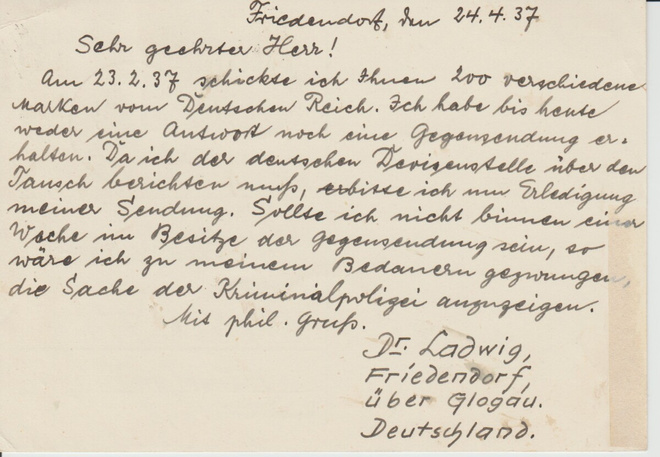 Friedendorf, den 24.4.37
Sehr geehrter Herr!
Am 23.2.37 schickte ich Ihnen 200 verschiedene
Marken vom Deutschen Reich. Ich habe bis heute
weder eine Antwort noch eine Gegensendung er-
halten. Da ich der deutschen Devisenstelle über den
Tausch berichten muß, erbitte ich um Erledigung
meiner Sendung. Sollte ich nicht binnen einer
Woche im Besitze der Gegensendung sein, so
wäre ich zu meinem Bedauern gezwungen,
die Sache der Kriminalpolizei anzuzeigen.
Mit phil. Gruß.
Dr. Ladwig,
Friedendorf,
über Glogau.
Deutschland.